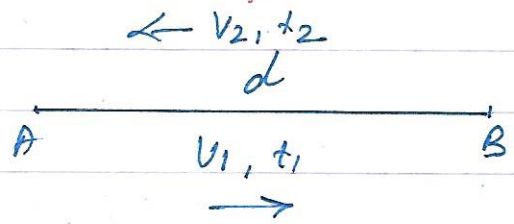 ← V2, t2
d
A B
V1, t1
→